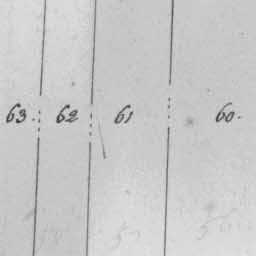 63. 62 61 60.